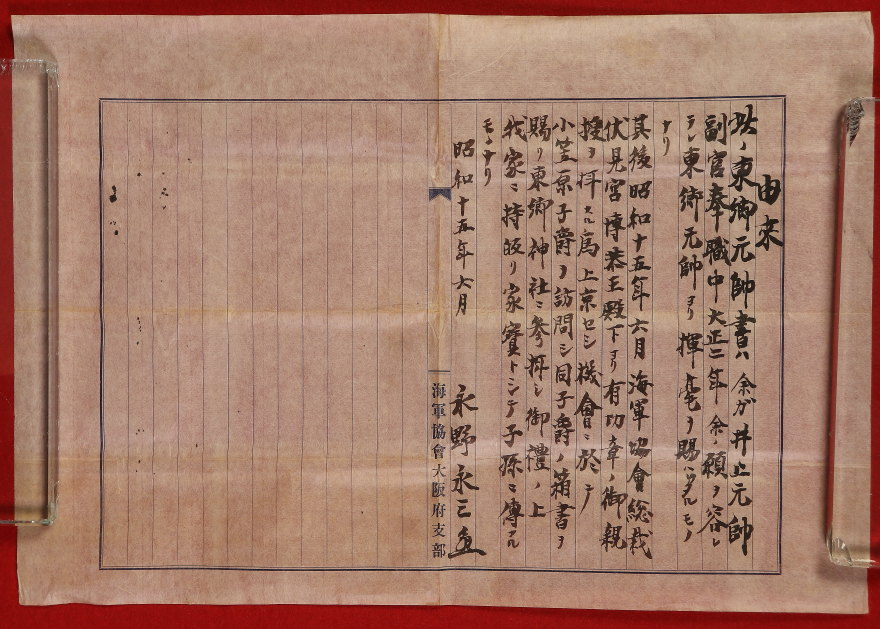 由来
此ノ東郷元帥書ハ余ガ井上元帥
副官奉職中大正二年余ノ願ヲ容レ
ラレ東郷元帥ヨリ揮毫ヲ賜ハリタルモノ
ナリ
其後昭和十五年六月海軍協會総裁
伏見宮博恭王殿下ヨリ有功章ノ御親
授ヲ拝スル為上京セシ機會ニ於テ
小笠原子爵ヲ訪問シ同子爵ノ箱書ヲ
賜リ東郷神社ニ参拝シ御禮ノ上
我家ニ持皈リ家寳トシテ子孫ニ傳フル
モノナリ
昭和十五年六月
永野永三
海軍協會大阪府支部